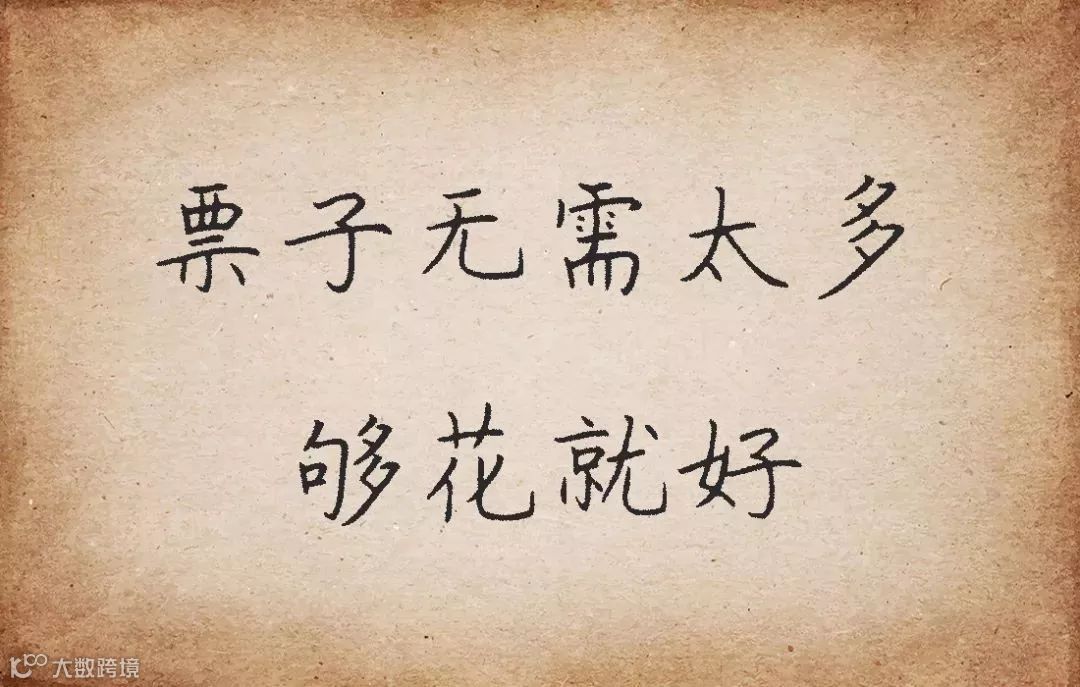 票子无需太多
够花就好
大数跨境